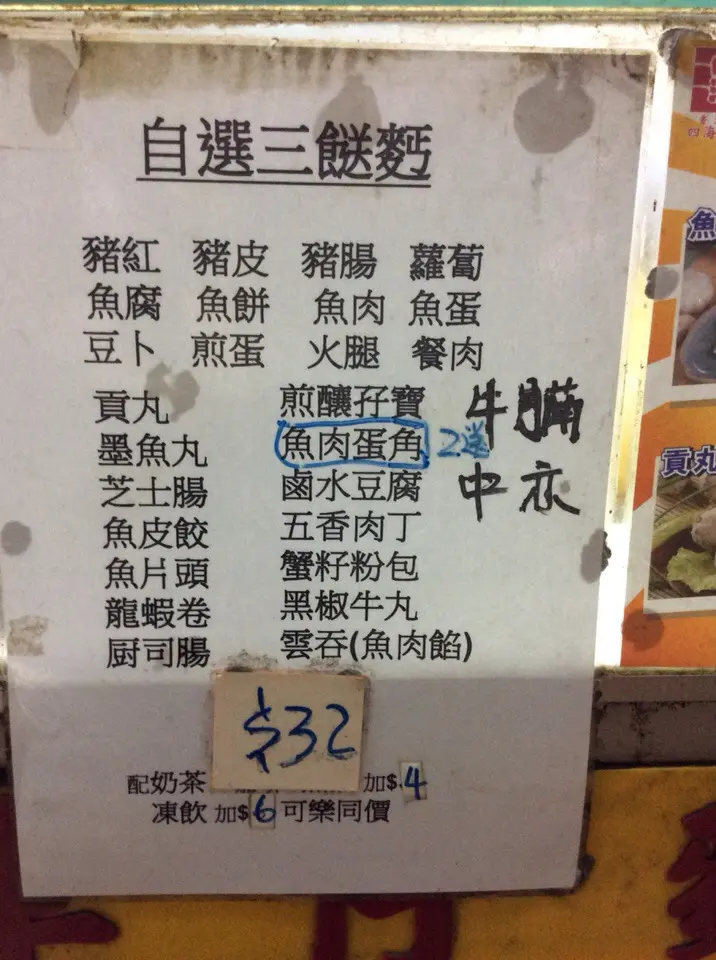 自選三餸麪
豬紅 豬皮 豬腸 蘿蔔
魚腐 魚餅 魚肉 魚蛋
豆卜 煎蛋 火腿 餐肉
貢丸 煎釀孖寶 牛腩
墨魚丸 魚肉蛋角 2送
芝士腸 鹵水豆腐 中
魚皮餃 五香肉丁
魚片頭 蟹籽粉包
龍蝦卷 黑椒牛丸
厨司腸 雲吞(魚肉餡)
$32
配奶茶 加$4
凍飲 加$6 可樂同價
四海
魚
貢丸